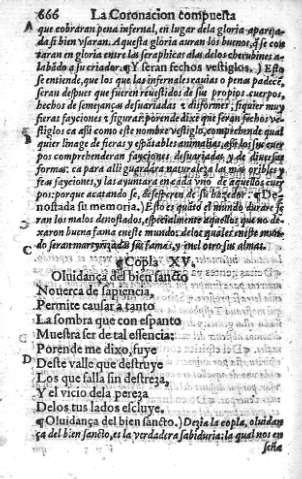 666 La Coronacion compuesta
A que cobraran pena infernal, en lugar dela gloria apareja-
da si bien vsaran. A questa gloria auran los buenos, q̃ se con
taran en gloria entre las seraphicas alas delos cherubines a-
labãdo a su criador. ¶ Y seran fechos vestiglos.) Esto
se entiende, que los que las infernales rauias o pena padecẽ,
seran despues que fueren reuestidos de sus propios cuerpos,
hechos de semejanças desuariadas & disformes, siquier muy
fieras fayciones & figuras: porende dixe que seran fechos ve-
stiglos ca assi como este nombre vestiglo, comprehende qual
B quier linage de fieras y espãtables animalias, assi los sus cuer
pos comprehenderan fayciones desuariadas y de diuersas
formas: ca para alli guardara naturaleza las mas oribles y
feas fayciones, y las ayuntara en cada vno de aquellos cuer-
pos: porque acatando se, desesperen de su hazedor. ¶ De-
nostada su memoria.) Esto es quãto el mundo durare se
ran los malos denostados, especialmente aquellos que no de-
xaron buena fama eneste mundo: delos quales eneste mun-
C do seran martyrizadas sus famas, y enel otro sus almas.
¶ Copla XV.
Oluidança del bien sancto
Nouerca de sapiencia,
Permite causar a tanto
La sombra que con espanto
Muestra ser de tal essencia:
Porende me dixo, fuye
D Deste valle que destruye
Los que falla sin destreza,
Y el vicio dela pereza
Delos tus lados escluye.
¶ Oluidança del bien sancto.) Dezia la copla, oluidan
ça del bien sancto, es la verdadera sabiduria: la qual nos en
seña